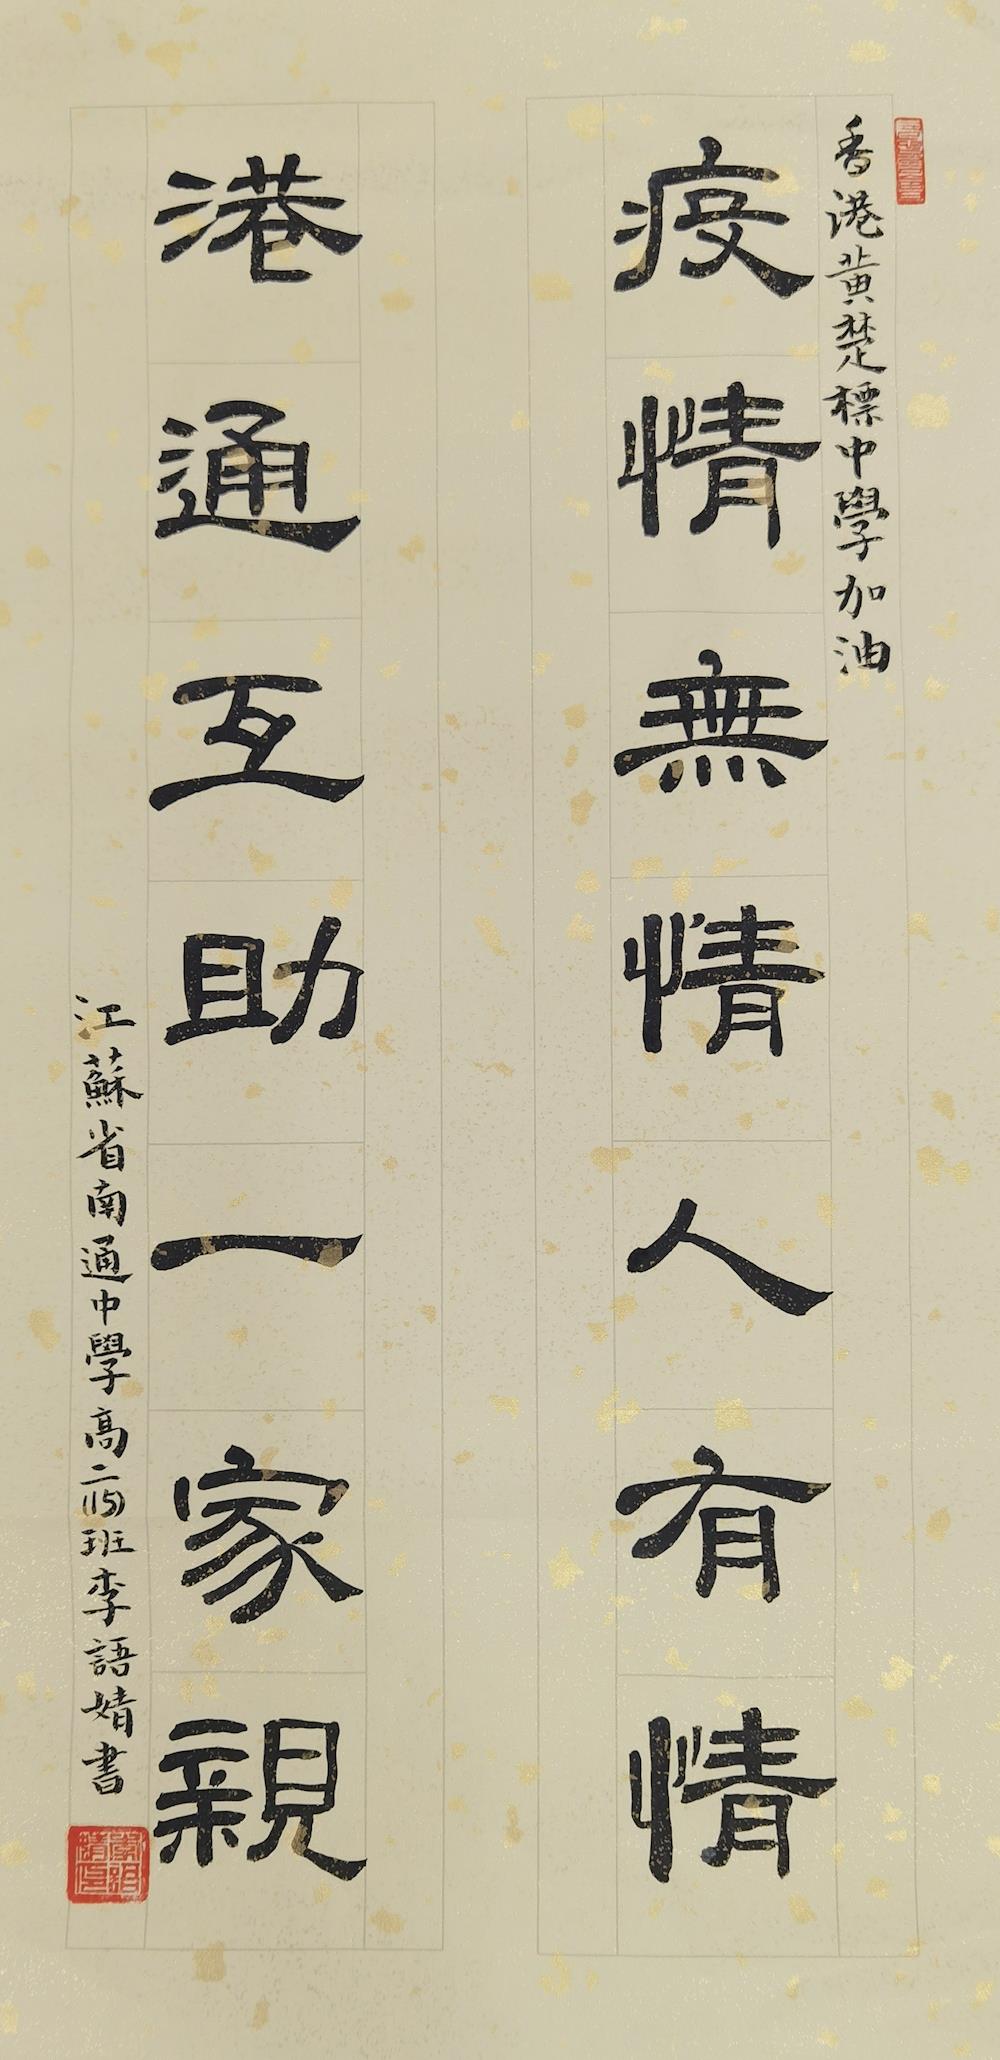 香港黄楚標中學加油
疫情無情人有情
港通互助一家親
江蘇省南通中學高二(15)班李語婧書